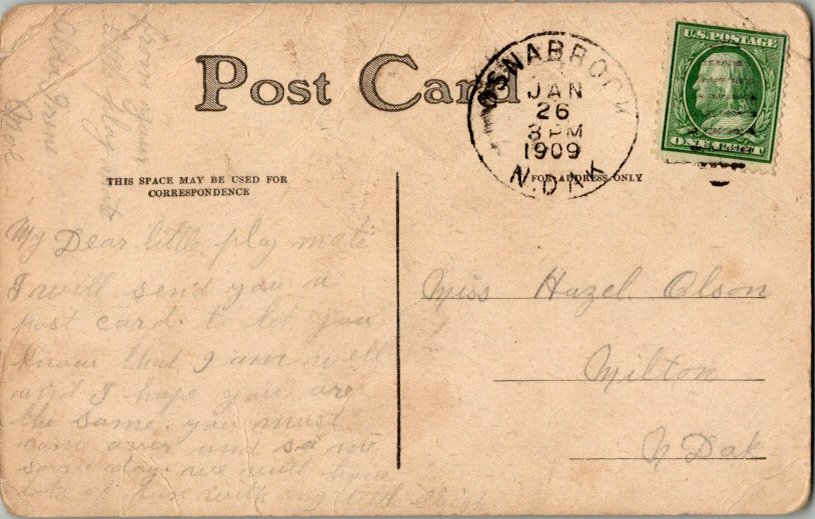 Post Card
OSNABROCK
JAN
26
8 PM
1909
N. DAK
U.S. POSTAGE
ONE CENT
THIS SPACE MAY BE USED FOR
CORRESPONDENCE
FOR ADDRESS ONLY
My Dear little play mate
I will send you a
post card. to let you
know that I am well
and I hope you are
the same. you must
come over and se me
some day. we will have
lots of fun with my little Sleigh
from your
little play mate
Miss Hazel Olson
Milton
N Dak